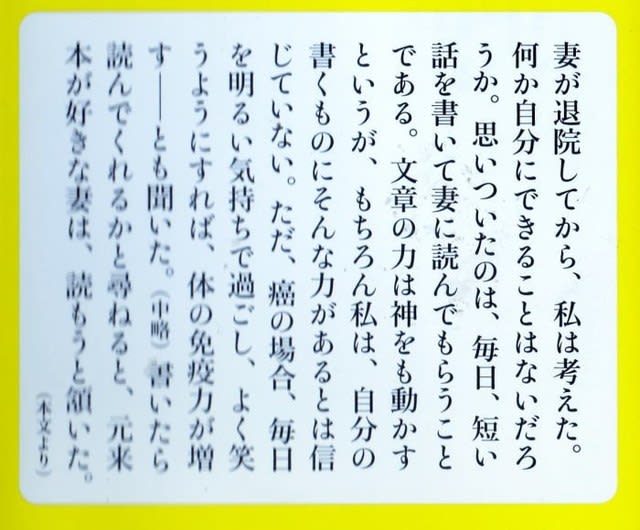 妻が退院してから、私は考えた。
何か自分にできることはないだろ
うか。思いついたのは、毎日、短い
話を書いて妻に読んでもらうこと
である。文章の力は神をも動かす
というが、もちろん私は、自分の
書くものにそんな力があるとは信
じていない。ただ、癌の場合、毎日
を明るい気持ちで過ごし、よく笑
うようにすれば、体の免疫力が増
す――とも聞いた。（中略）書いたら
読んでくれるかと尋ねると、元来
本が好きな妻は、読もうと頷いた。
（本文より）